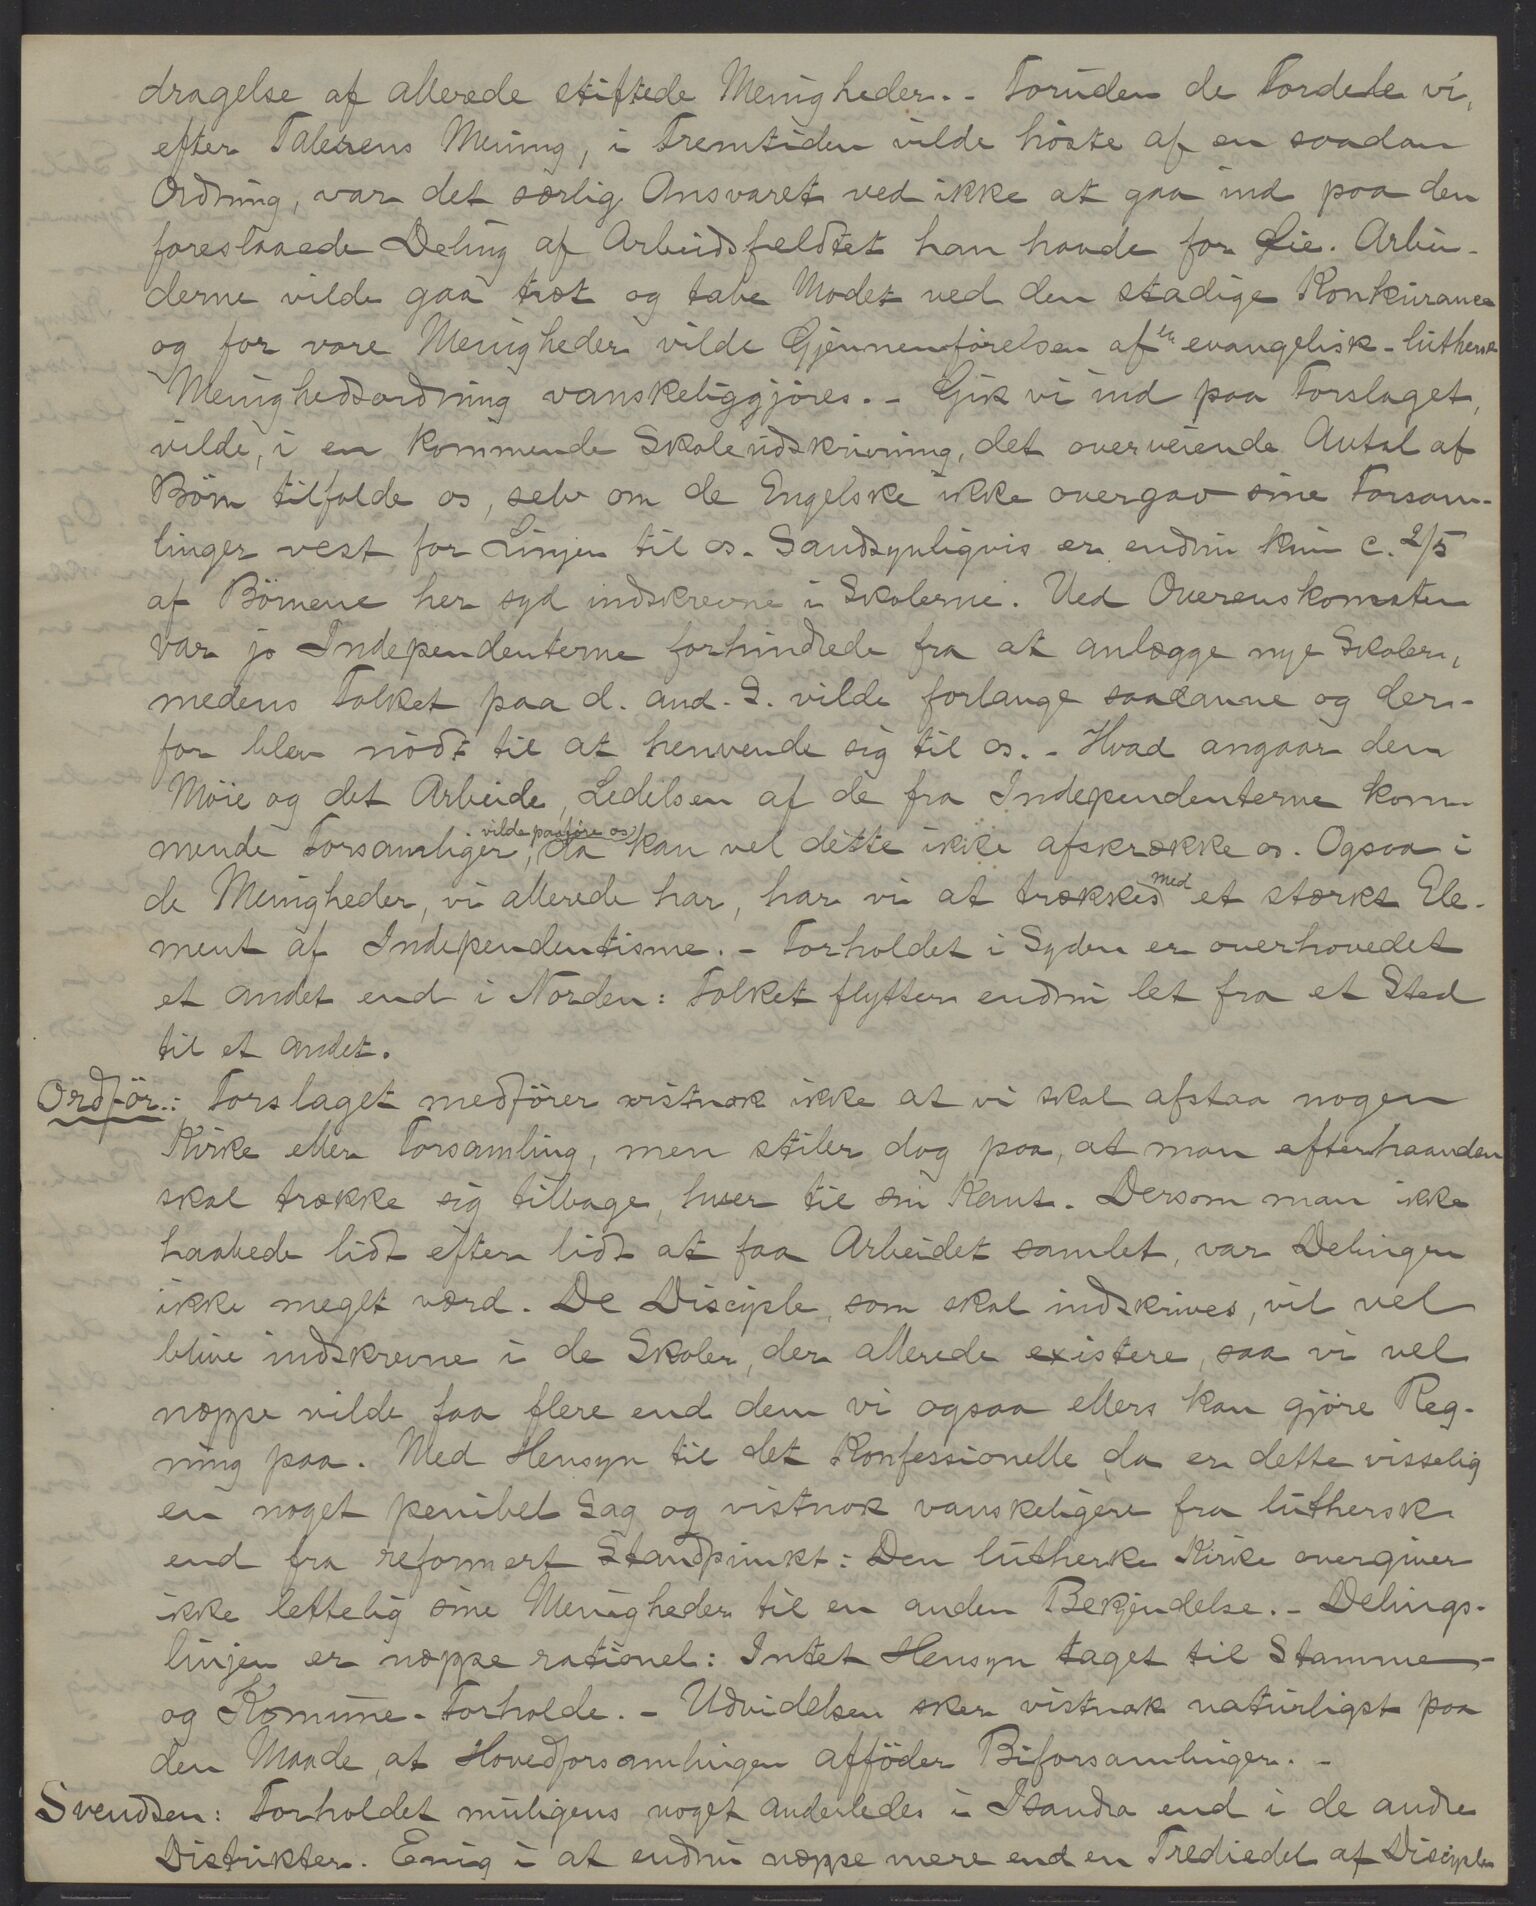 dragelse af allerede stiftede Menigheder. - Foruden de Fordele vi,
efter Talerens Mening, i Fremtiden vilde höste af en saadan
Ordning, var det særlig Ansvaret ved ikke at gaa ind paa den
foreslaaede Deling af Arbeidsfeldtet han havde for Øie. Arbei-
derne vilde gaa træt og tabe Modet ved den stadige Konkurance
og for vore Menigheder vilde Gjennemförelsen af en evangelisk-luthersk
Menighedsordning vanskeliggjöres. - Gik vi ind paa Forslaget,
vilde, i en kommende Skoleudskrivning, det overveiende Antal af
Börn tilfalde os, selv om de Engelske ikke overgav sine Forsam-
linger vest for Linjen til os. Sandsynligvis er endnu kun c. 2/5
af Börnene her syd indskrevne i Skolerne. Ved Overenskomsten
var jo Independenterne forhindrede fra at anlægge nye Skoler,
medens Folket paa d. and. S. vilde forlange saadanne og der-
for blev nödt til at henvende sig til os. - Hvad angaar den
Möie og det Arbeide, Ledelsen af de fra Independenterne kom-
mende Forsamliger, vilde paaföre os, da kan vel dette ikke afskrække os. Ogsaa i
de Menigheder, vi allerede har, har vi at trækkes med et stærkt Ele-
ment af Independentisme. - Forholdet i Syden er overhovedet
et andet end i Norden: Folket flytter endnu let fra et Sted
til et andet.
Ordför.: Forslaget medförer vistnok ikke at vi skal afstaa nogen
Kirke eller Forsamling, men stiler dog paa, at man efterhaanden
skal trække sig tilbage, hver til sin Kant. Dersom man ikke
haabede lidt efter lidt at faa Arbeidet samlet, var Delingen
ikke meget værd. De Disciple, som skal indskrives, vil vel
blive indskrevne i de Skoler, der allerede existere, saa vi vel
næppe vilde faa flere end dem vi ogsaa ellers kan gjöre Reg-
ning paa. Med Hensyn til det Konfessionelle da er dette visselig
en noget penibel Sag og vistnok vanskeligere fra luthersk
end fra reformert Standpunkt: Den lutherke Kirke overgiver
ikke lettelig sine Menigheder til en anden Bekjendelse. - Delings-
linjen er næppe rationel: Intet Hensyn taget til Stamme-
og Komune-Forholde. - Udvidelsen sker vistnok naturligst paa
den Maade, at Hovedforsamlingen afföder Biforsamlinger. -
Svendsen: Forholdet muligens noget anderledes i Isandra end i de andre
Distrikter. Enig i at endnu næppe mere end en Trediedel af Disciplen